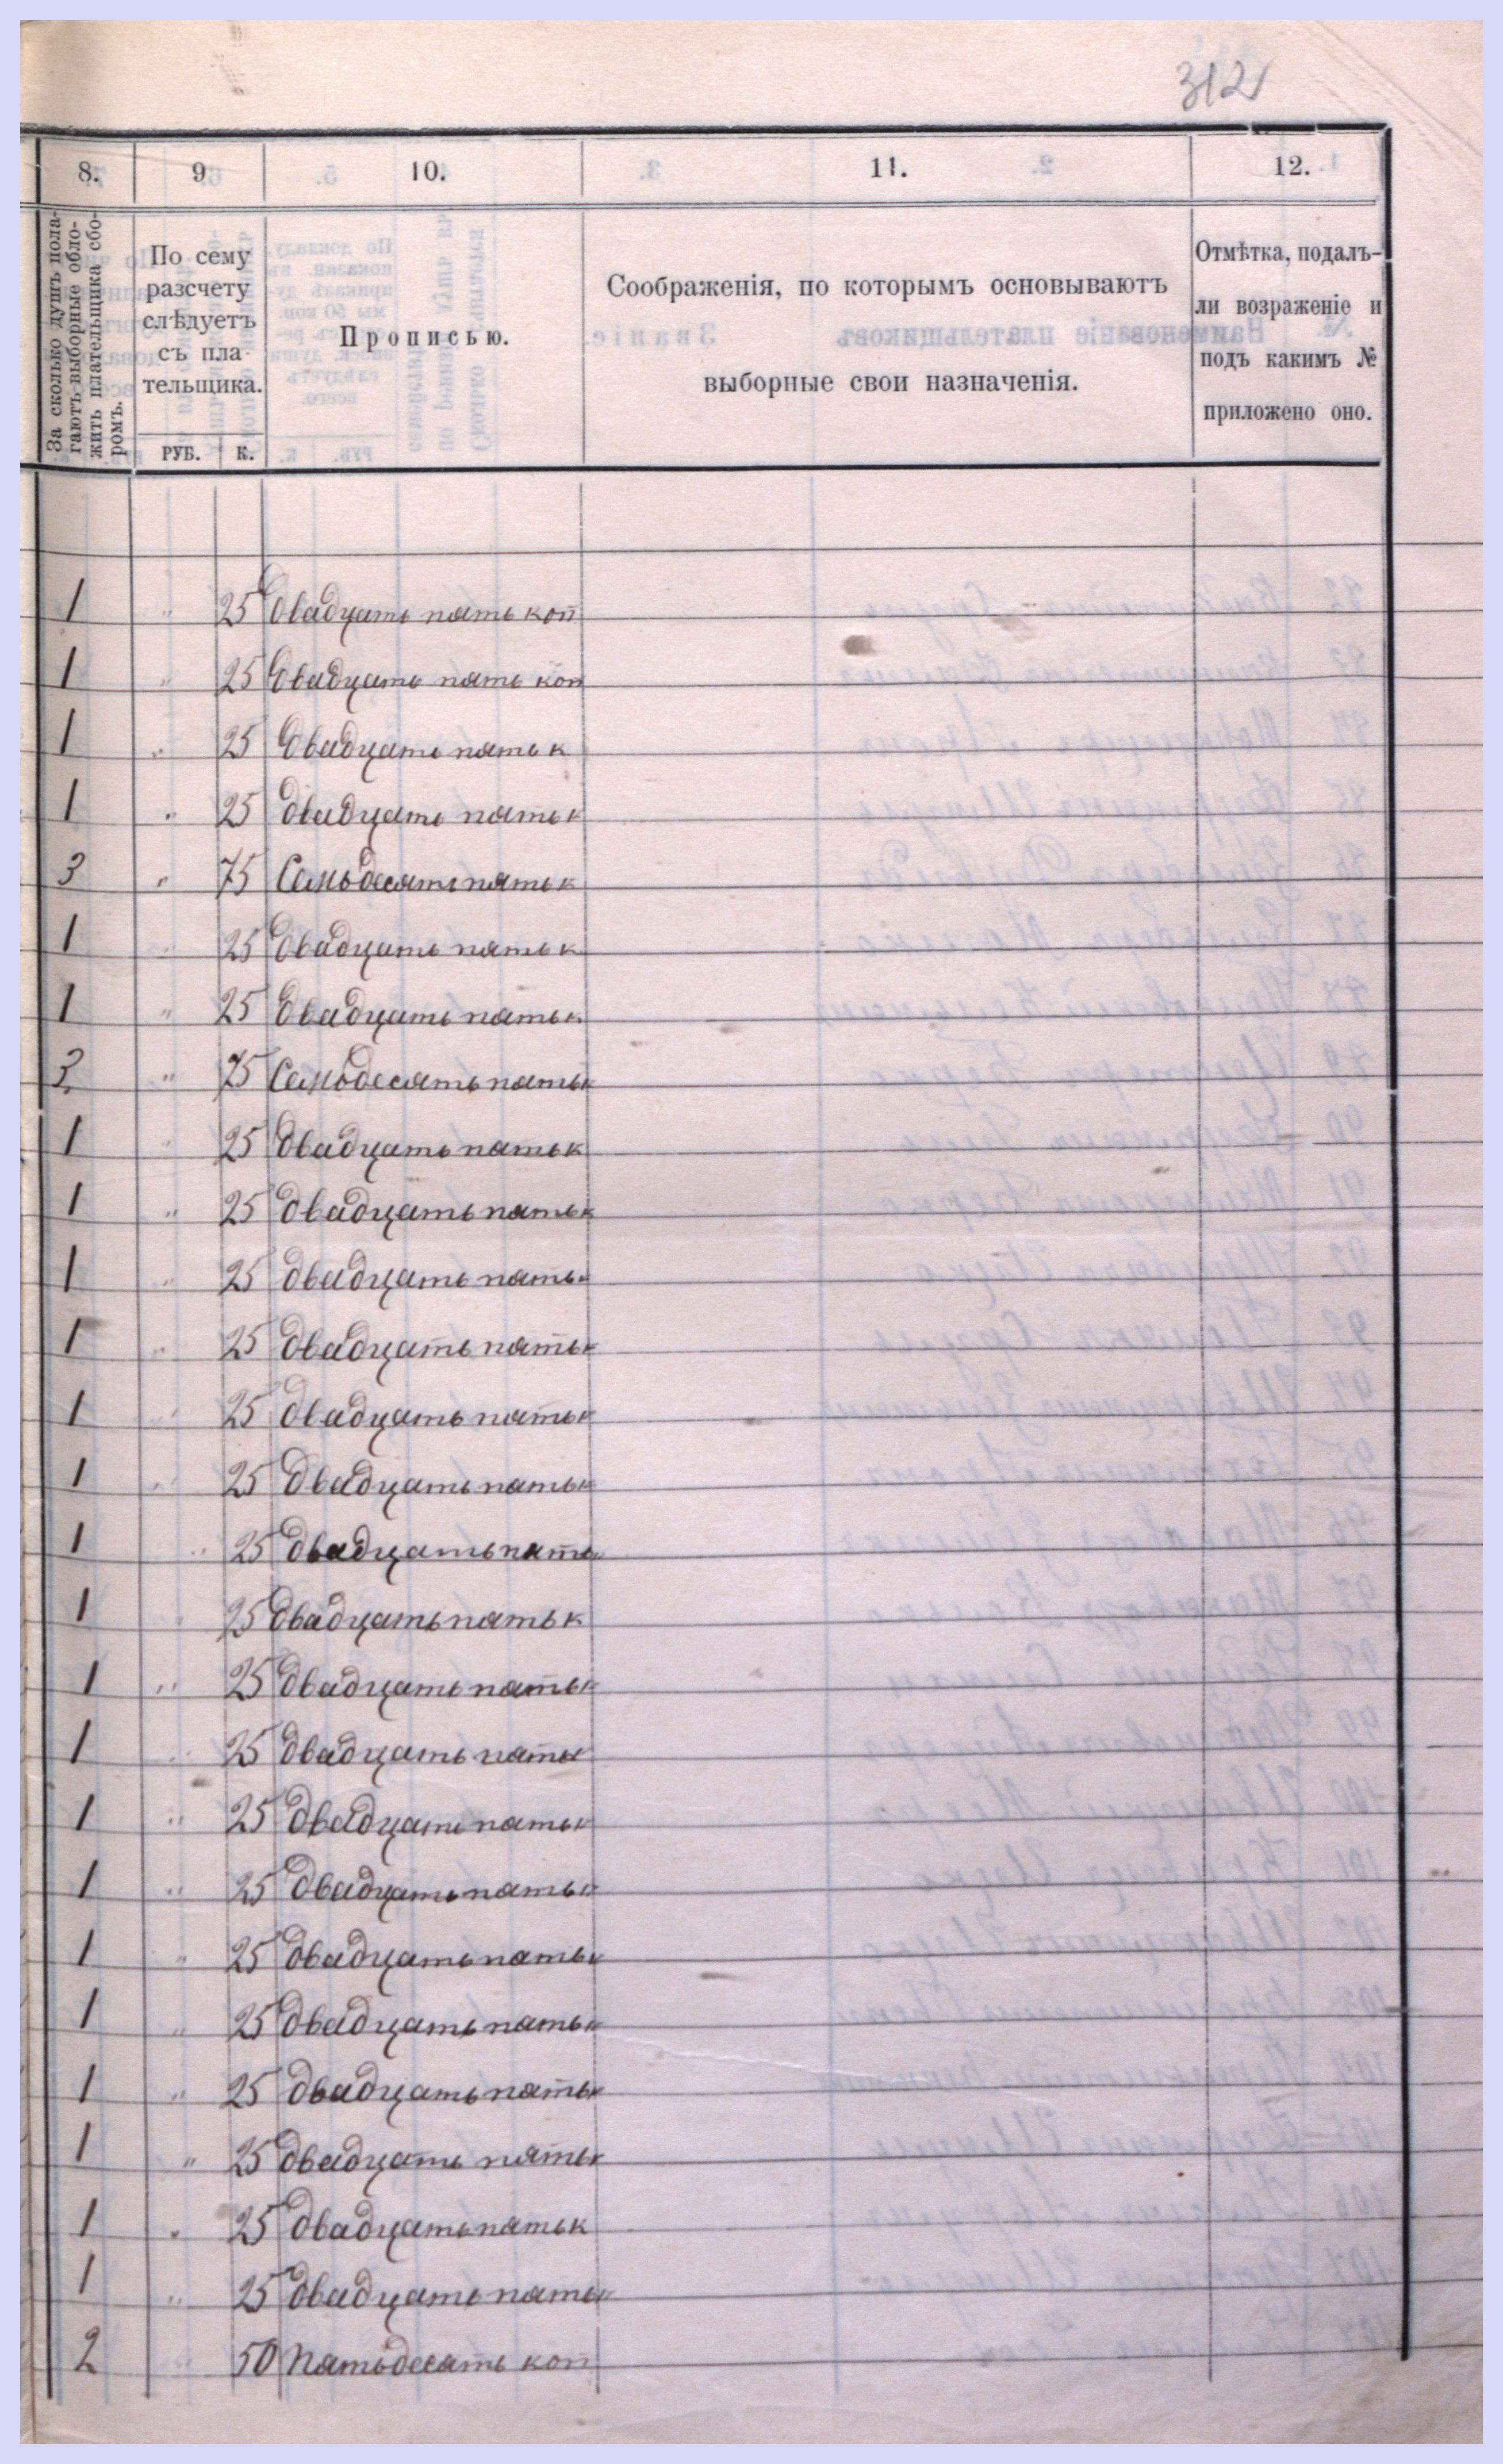 312
8. 9 10. 11. 12.
За сколько душъ пола-
гаютъ выборные обло-
жить плательщика сбо-
ромъ.
По сему
разсчету
слѣдуетъ
съ пла-
тельщика.
РУБ. К.
Прописью.
Соображенія, по которымъ основываютъ
выборные свои назначенія.
Отмѣтка, подалъ-
ли возраженіе и
подъ какимъ №
приложено оно.
1 " 25 двадцать пять коп
1 " 25 двадцать пять коп
1 " 25 двадцать пять к
1 " 25 двадцать пять к
3 " 75 Семьдесятъ пять к
1 " 25 двадцать пять к
1 " 25 двадцать пять к
3 " 75 Семьдесять пять к
1 " 25 двадцать пять к
1 " 25 двадцать пять к
1 " 25 двадцать пять к
1 " 25 двадцать пять к
1 " 25 двадцать пять к
1 " 25 двадцать пять к
1 " 25 двадцать пять
1 " 25 двадцать пять к
1 " 25 двадцать пять к
1 " 25 двадцать пять к
1 " 25 двадцать пять к
1 " 25 двадцать пять к
1 " 25 двадцать пять к
1 " 25 двадцать пять к
1 " 25 двадцать пять к
1 " 25 двадцать пять к
1 " 25 двадцать пять к
1 " 25 двадцать пять к
2 " 50 пятьдесять коп